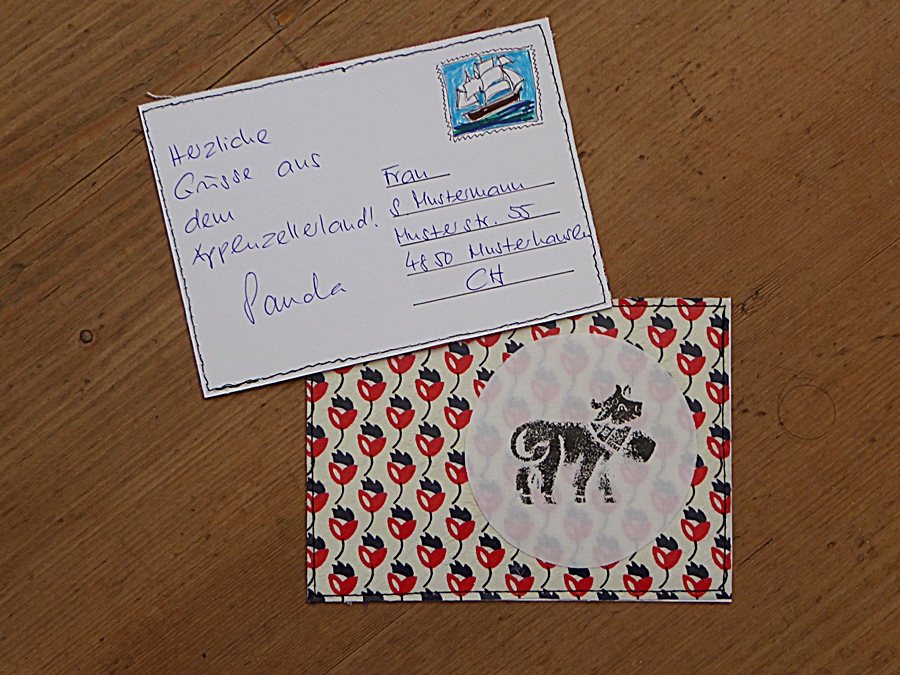 Herzliche
Grüsse aus
dem
Appenzellerland!
Panda
Frau
S. Mustermann
Musterstr. 55
4850 Musterhausen
CH